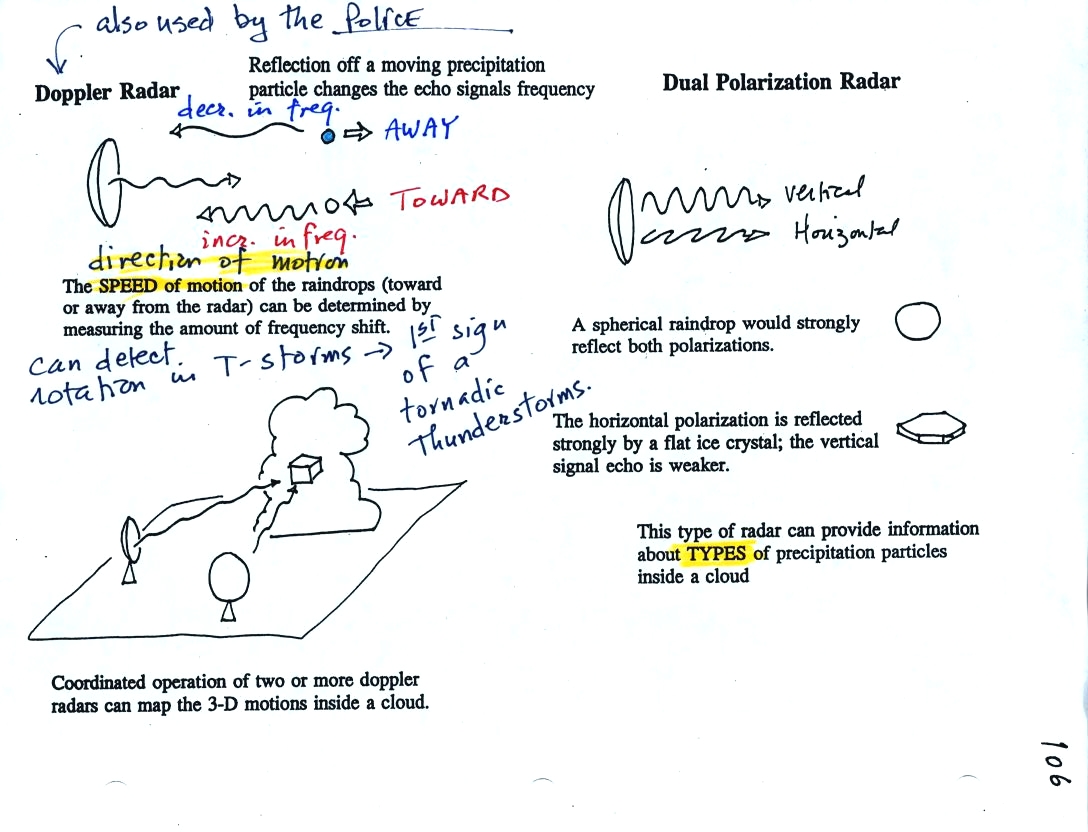 also used by the POLICE
Doppler Radar
Reflection off a moving precipitation
particle changes the echo signals frequency
decr. in freq.
AWAY
TOWARD
incr. in freq.
direction of motion
The SPEED of motion of the raindrops (toward
or away from the radar) can be determined by
measuring the amount of frequency shift.
can detect
rotation in T-storms → 1st sign
of a
tornadic
thunderstorms.
Coordinated operation of two or more doppler
radars can map the 3-D motions inside a cloud.
Dual Polarization Radar
vertical
Horizontal
A spherical raindrop would strongly
reflect both polarizations.
The horizontal polarization is reflected
strongly by a flat ice crystal; the vertical
signal echo is weaker.
This type of radar can provide information
about TYPES of precipitation particles
inside a cloud
106